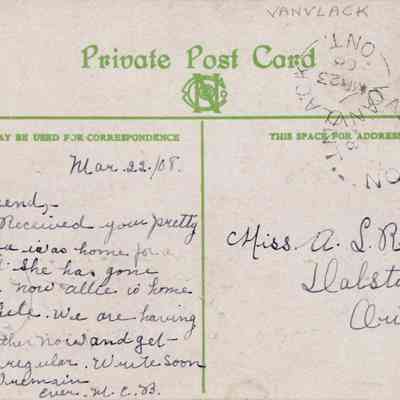 VANVLACK
Private Post Card
AY BE USED FOR CORRESPONDENCE
THIS SPACE FOR ADDRES
VANVLACK
ONT.
MR 23
08
Mar. 22./08.
end,-
Received your pretty
a was home for a
She has gone
now allie is home
We are having
ther now and get-
regular. Write soon
remain
Ever. M. C. B.
Miss. A. L. R
Dalst